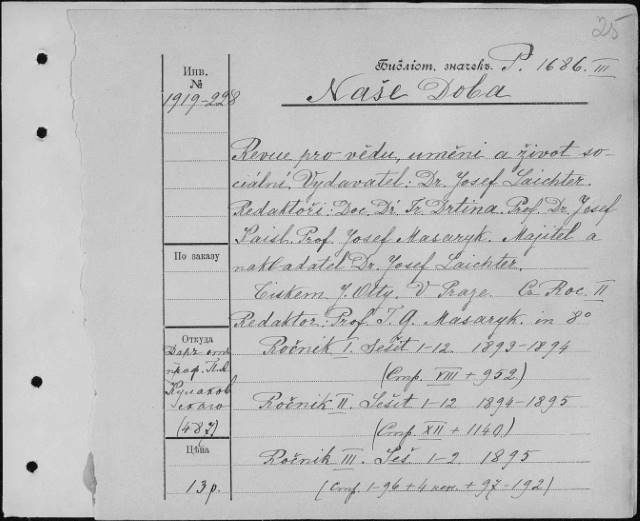 25
Библіот. значекъ P. 1686. III
Инв. №
1919-228
Naše Doba
Revue pro vědu, uměni a život so-
ciální. Vydavatel: Dr. Josef Laichter.
Redaktoři: Doc. Dr. Fr. Drtina. Prof. Dr. Josef
Kaisl. Prof. Josef Masaryk. Majitel a
nakladatel Dr. Josef Laichter.
Tiskem J. Otty. V Praze. Roč. II
Redaktor: Prof. T. G. Masaryk. in 8°
Ročnik I. Sešit 1-12 1893-1894
(Стр. VIII + 952.)
Ročnik II. Sešit 1-12 1894-1895
(Стр. XII + 1140.)
Ročnik III. Seš 1-2 1895
(Стр. 1-96 + 4 нен. + 97-192)
По заказу
Откуда
Даръ отъ
проф. Пл.
Кулаков
скаго
(487)
Цѣна
13 р.